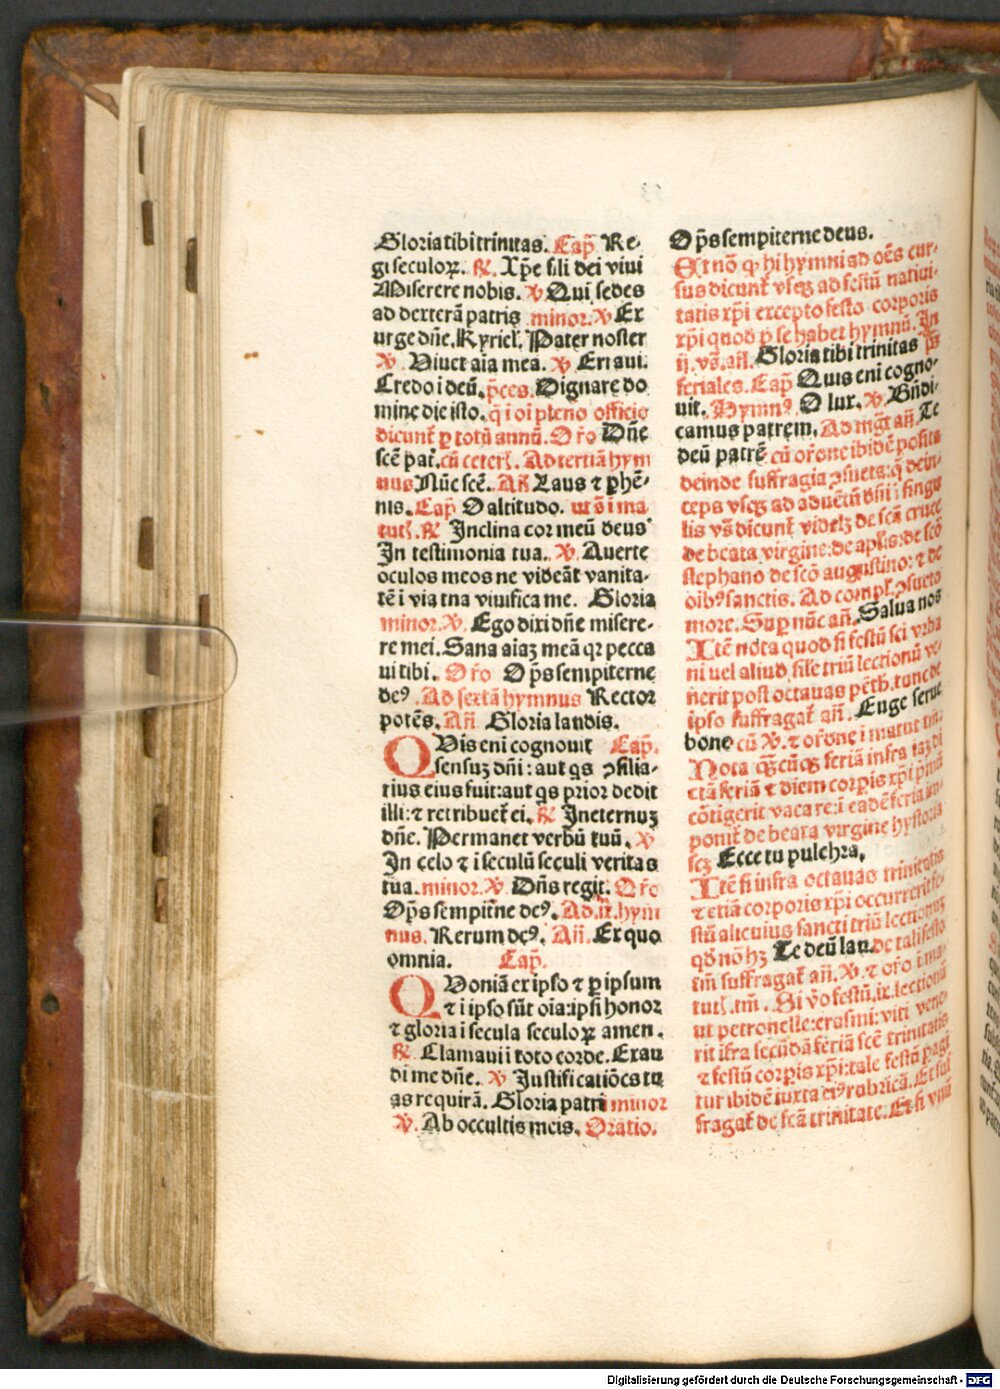 Gloria tibi trinitas. Cap̄. Re-
gi seculoꝝ. ℟. Xp̄e fili dei viui
Miserere nobis. ℣ Qui sedes
ad dexterā patris minor. ℣ Ex
urge dn̄e. Kyriel. Pater noster
℣ Viuet aīa mea. ℣ Erraui.
Credo i deū. p̄ces. Dignare do
mine die isto. q̄ i oī pleno officio
dicunt̄ ꝑ totū annū. Oro Dn̄e
scē pat̄. cū ceteri. Ad tertiā hym
nus Nūc scē. An̄ Laus ⁊ phē-
nis. Cap̄ O altitudo. ut s̄ i ma
tuti. ℟ Inclina cor meū deus
In testimonia tua. ℣. Auerte
oculos meos ne videāt vanita-
tē i via tua viuifica me. Gloria
minor. ℣. Ego dixi dn̄e misere-
re mei. Sana aīaꝫ meā qꝛ pecca
ui tibi. Oro Op̄s sempiterne
deꝰ Ad sextā hymnus Rector
potēs. An̄. Gloria laudis.
QVis eni cognouit Cap̄.
sensuꝫ dn̄i: aut qs ꝯsilia-
rius eius fuit: aut qs prior dedit
illi: ⁊ retribuet̄ ei. ℟ Ineternuꝫ
dn̄e. Permanet verbū tuū. ℣
In celo ⁊ i seculū seculi veritas
tua. minor. ℣. Dn̄s regit. Oro
Op̄s sempit̄ne deꝰ. Ad. ix. hym
nus. Rerum deꝰ. An̄. Ex quo
omnia. Cap̄.
QVoniā ex ipso ⁊ ꝑ ipsum
⁊ i ipso sūt oīa: ipsi honor
⁊ gloria i secula seculoꝝ amen.
℟. Clamaui i toto corde. Exau
di me dn̄e. ℣ Justificatiōes tu
as requirā. Gloria patri minor
℣. Ab occultis meis. Oratio.
Op̄s sempiterne deus.
Et nō q̄ hi hymni ad oēs cur-
sus dicunt̄ vsqꝫ ad festū natiui-
tatis xp̄i excepto festo corporis
xp̄i quod ꝑ se habet hymnū. In
ij. vs̄. an̄. Gloria tibi trinitas p̄s
feriales. Cap̄ Quis eni cogno-
uit. Hymnꝰ O lux. ℣. Bn̄di-
camus patrem. Ad mg̅t an̄ Te
deū patrē cū orōne ibidē posita
deinde suffragia ꝯsueta: q̄ dein-
ceps vsqꝫ ad aduētū dn̄i i singu
lis vs̄ dicunt̄ videlꝫ de scā cruce
de beata virgine: de aplis: de scō
stephano de scō augustino: ⁊ de
oibꝰ sanctis. Ad compl̄. ꝯsueto
more. Suꝑ nūc an̄. Salua nos
Itē nota quod si festū sci vrba
ni uel aliud sile triū lectionū ve-
nerit post octauas pēth. tunc de
ipso suffragat̄ an̄. Euge serue
bone cū ℣. ⁊ orōne i matut tm̄.
Nota qꝫcūqꝫ feriā infra
ctā feriā ⁊ diem corpis xp̄i
cōtigerit vacare: i eadē feria im-
ponit̄ de beata virgine hystoria
scꝫ Ecce tu pulchra.
Itē si infra octauas trinitatis
⁊ etiā corporis xp̄i occurrerit fe-
stū alicuius sancti triū lectionuꝫ
qd̄ nō hꝫ Te deū lau. de tali festo
tm̄ suffragat̄ an̄. ℣. ⁊ oro i ma-
tuti. tm̄. Si v̄o festū. ix. lectionū
ut petronelle: erasmi: viti vene-
rit ifra secūdā feriā scē trinitatis
⁊ festū corpis xp̄i: tale festū pagi
tur ibidē iuxta eiꝰ rubricā. Et suf
fragat̄ de scā trinitate. Et si vnū